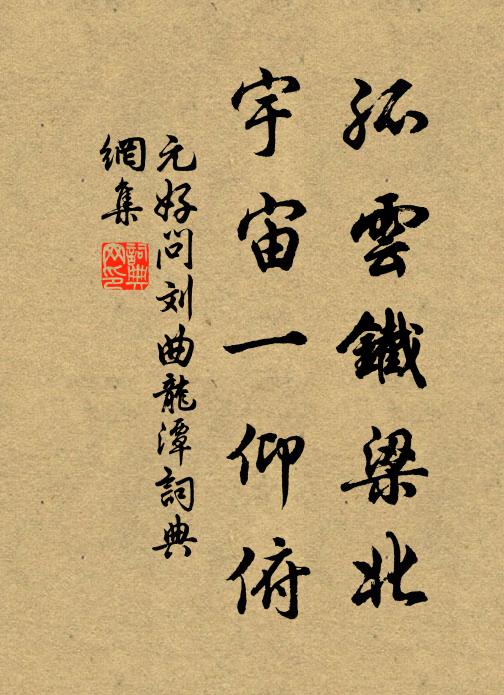 孤雲鐵梁北
宇宙一仰俯
元好问刘曲龍潭詞典
網集
詞典
网印